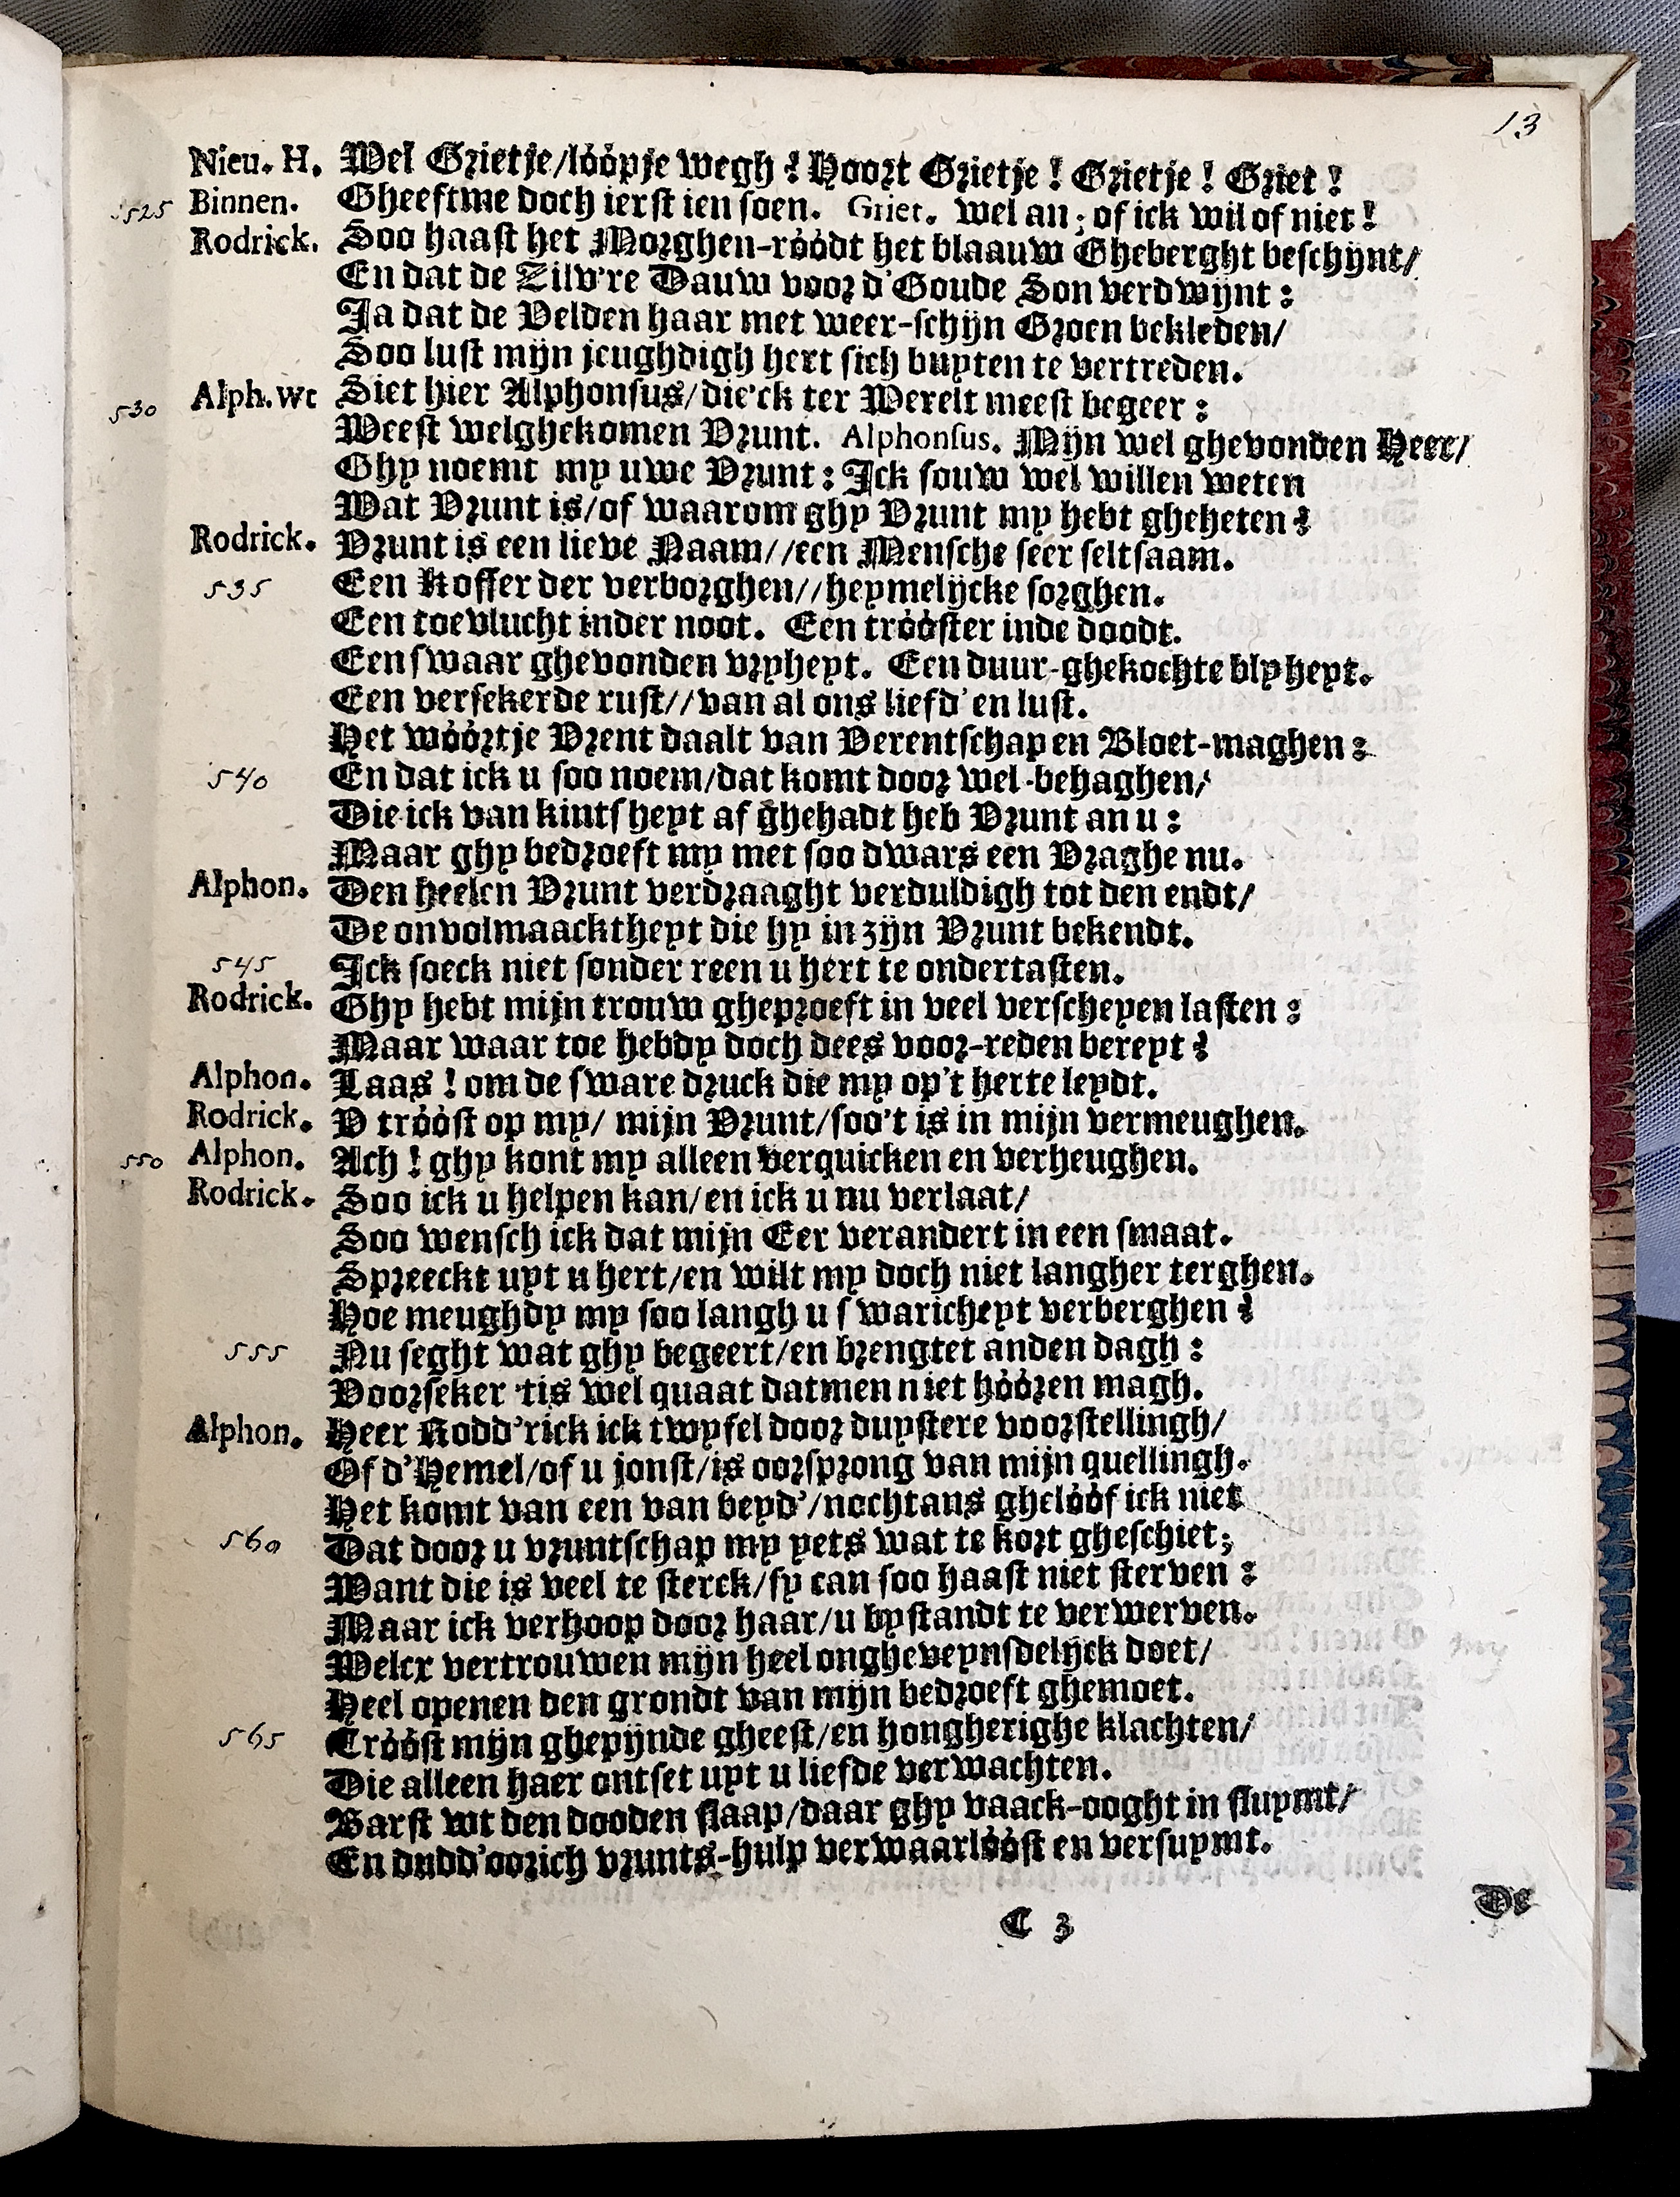 13
Nieu. H. Wel Grietje/lóópje wegh? Hoort Grietje! Grietje! Griet!
1525 Binnen. Gheeftme doch ierst ien soen. Griet. wel an; of ick wil of niet!
Rodrick. Soo haast het Morghen-róódt het blaauw Gheberght beschynt/
En dat de Zilv're Dauw voor d'Goude Son verdwijnt:
Ja dat de Velden haar met weer-schijn Groen bekleden/
Soo lust mijn jeughdigh hert sich buyten te vertreden.
530 Alph. wt Siet hier Alphonsus/die'ck ter Werelt meest begeer:
Weest welghekomen Vrunt. Alphonsus. Mijn wel ghevonden Heer/
Ghy noemt my uwe Vrunt: Ick souw wel willen weten
Wat Vrunt is/of waarom ghy Vrunt my hebt gheheten?
Rodrick. Vrunt is een lieve Naam//een Mensche seer seltsaam.
535 Een Koffer der verborghen//heymelijcke sorghen.
Een toevlucht inder noot. Een tróóster inde doodt.
Een swaar ghevonden vryheyt. Een duur-ghekochte blyheyt.
Een versekerde rust//van al ons liefd' en lust.
Het wóórtje Vrent daalt van Verentschap en Bloet-maghen:
540 En dat ick u soo noem/dat komt door wel-behaghen/
Die ick van kintsheyt af ghehadt heb Vrunt an u:
Maar ghy bedroeft my met soo dwars een Vraghe nu.
Alphon. Den heelen Vrunt verdraaght verduldigh tot den endt/
De onvolmaacktheyt die hy in zijn Vrunt bekendt.
545 Ick soeck niet sonder reen u hert te ondertasten.
Rodrick. Ghy hebt mijn trouw gheproeft in veel verscheyen lasten:
Maar waar toe hebdy doch dees voor-reden bereyt?
Alphon. Laas! om de sware druck die my op't herte leydt.
Rodrick. V tróóst op my/ mijn Vrunt/soo't is in mijn vermeughen.
550 Alphon. Ach! ghy kont my alleen verquicken en verheughen.
Rodrick. Soo ick u helpen kan/en ick u nu verlaat/
Soo wensch ick dat mijn Eer verandert in een smaat.
Spreeckt uyt u hert/en wilt my doch niet langher terghen.
Hoe meughdy my soo langh u swaricheyt verberghen?
555 Nu seght wat ghy begeert/en brengtet anden dagh:
Voorseker 'tis wel quaat datmen niet hóóren magh.
Alphon. Heer Rodd'rick ick twyfel door duystere voorstellingh/
Of d'Hemel/of u jonst/is oorsprong van mijn quellingh.
Het komt van een van beyd'/nochtans ghelóóf ick niet
560 Dat door u vruntschap my yets wat te kort gheschiet;
Want die is veel te sterck/sy can soo haast niet sterven:
Maar ick verhoop door haar/u bystandt te verwerven.
Welcx vertrouwen mijn heel ongheveynsdelijck doet/
Heel openen den grondt van mijn bedroeft ghemoet.
565 Tróóst mijn ghepijnde gheest/en hongherighe klachten/
Die alleen haer ontset uyt u liefde verwachten.
Barst wt den dooden slaap/daar ghy vaack-ooght in sluymt/
En dudd'oorich vrunts-hulp verwaarlóóst en versuymt.
C 3
De